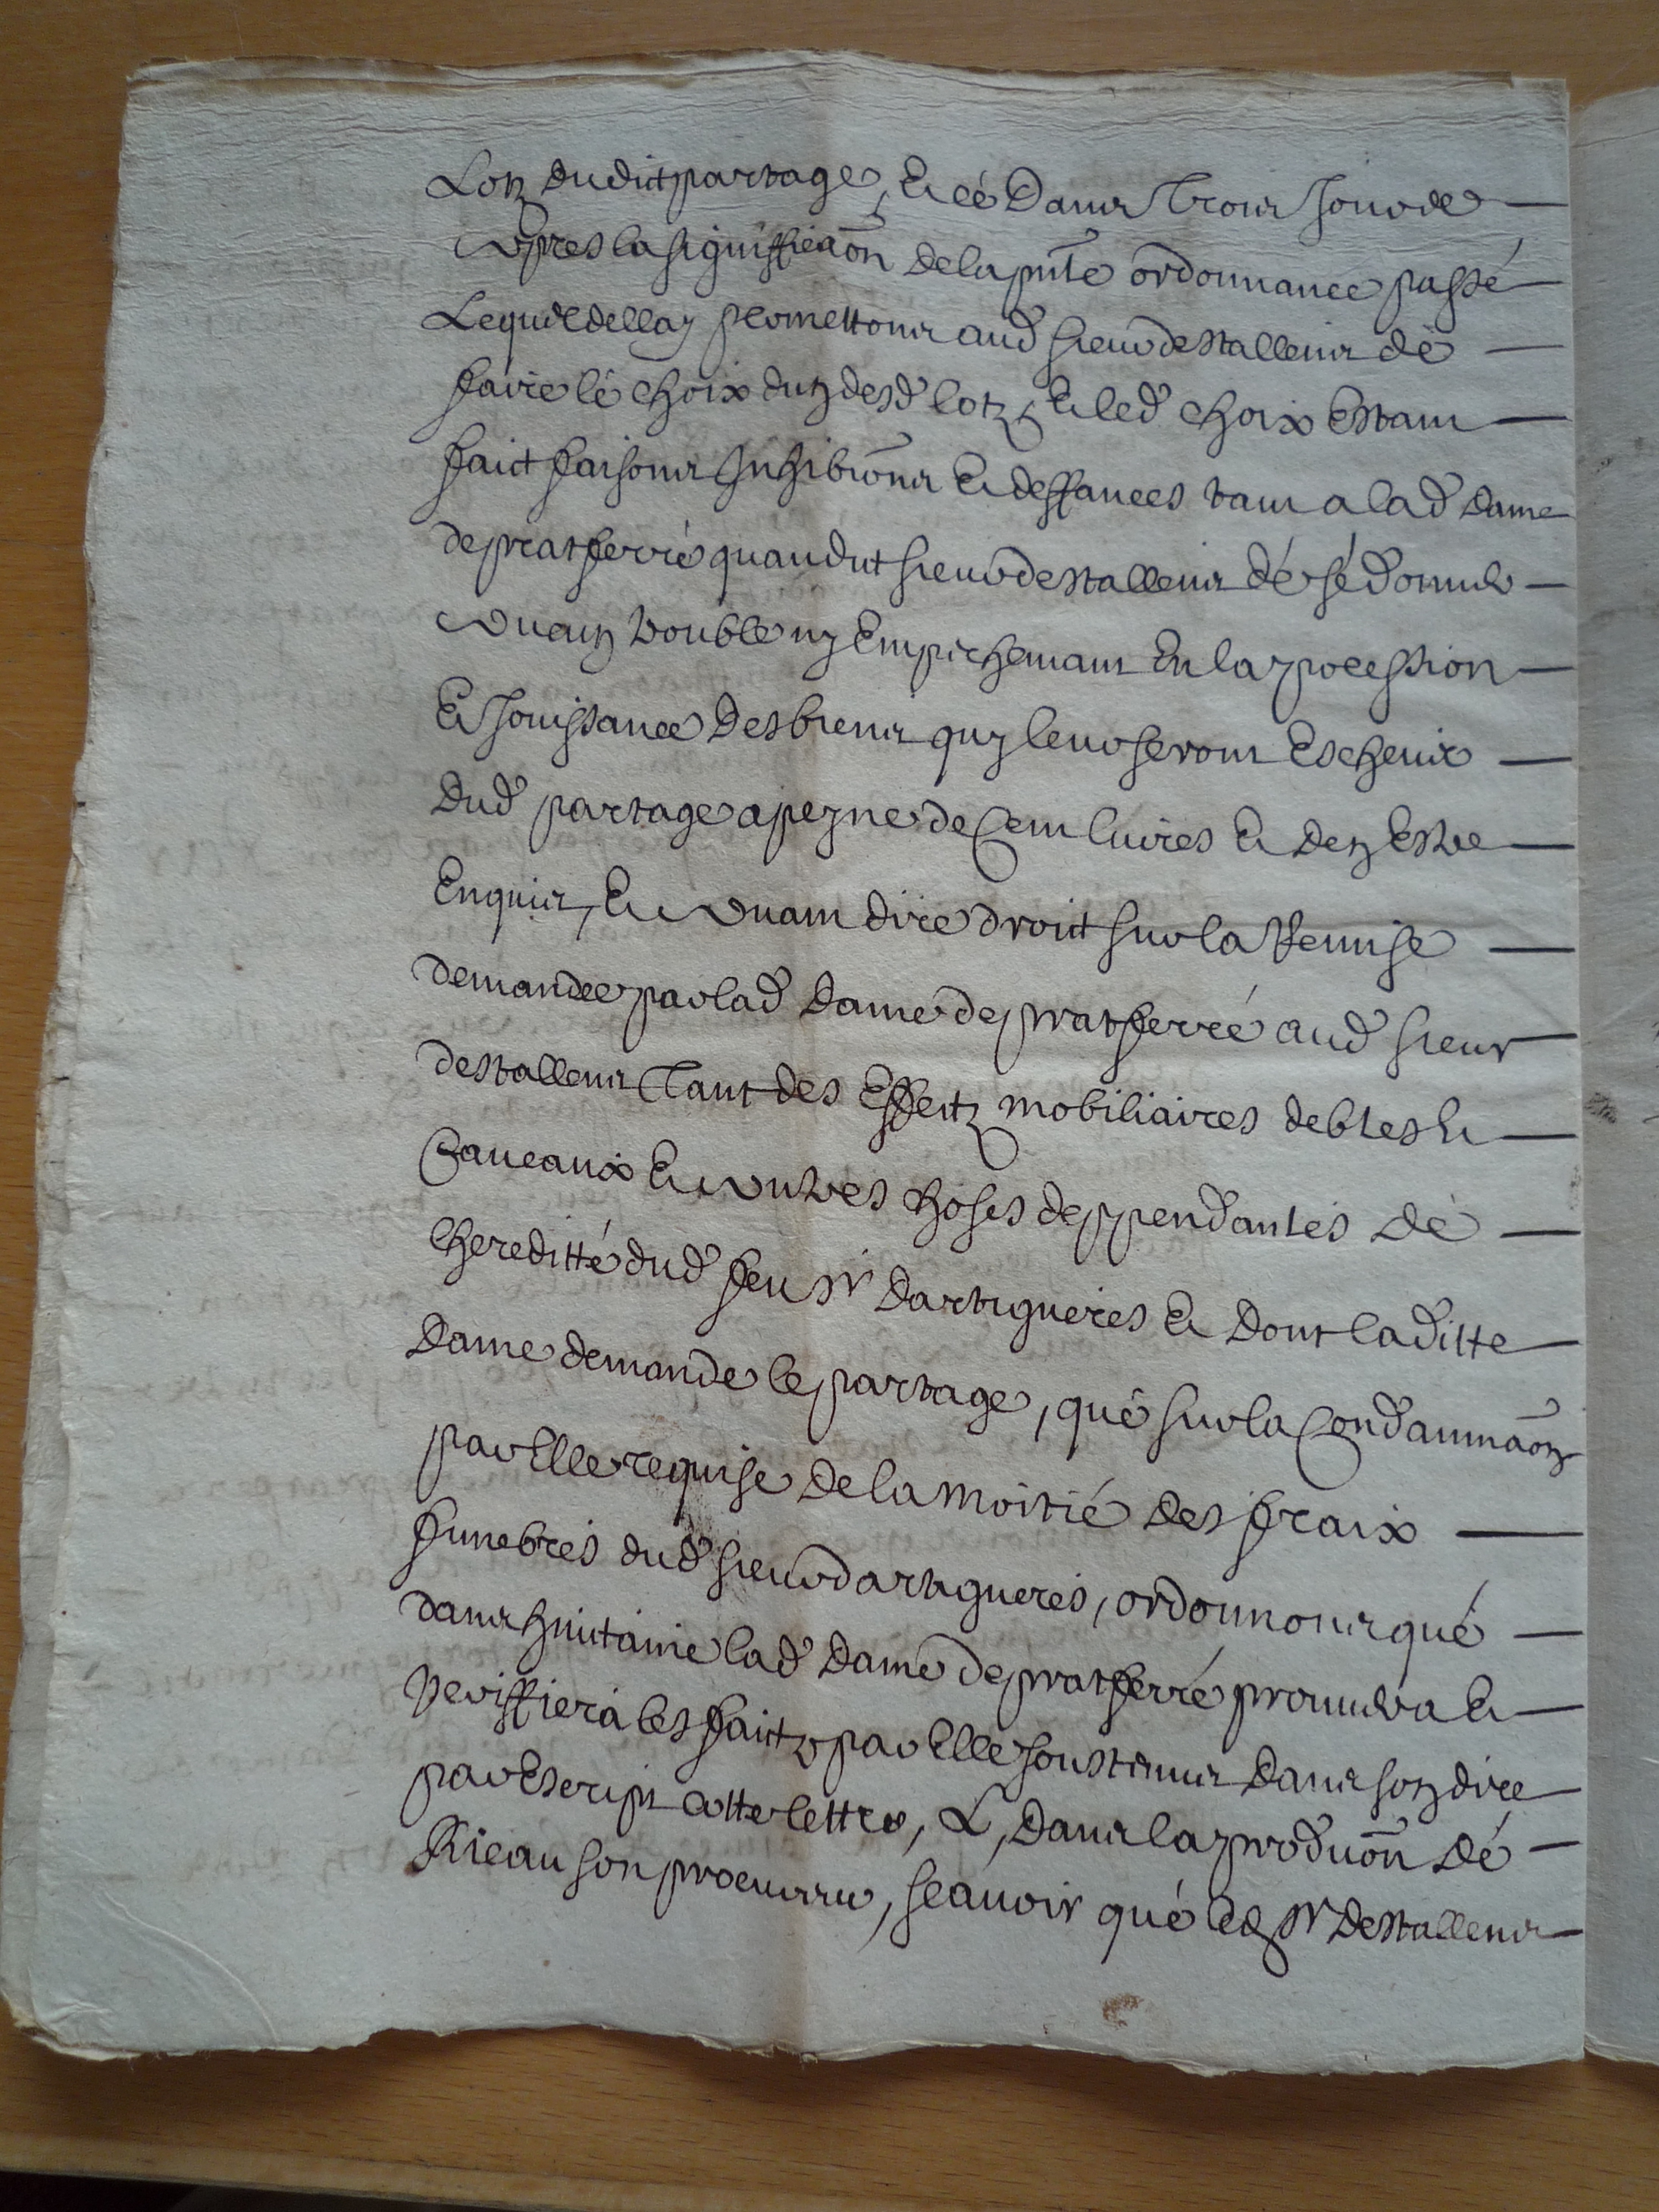 Lotz dudict partage, Et cé Dans Trois Jours —
apres la signiffica͠on de la pn͠te ordonnance passé —
Lequel dellay permettons aud sieur destallens dé —
faire lé choix dun desd lotz, Et led choix Estant —
faict faisons Inhibi͠ons Et deffances tant a lad Dame
de pratferré quaudit sieur destallens dé sé donner —
aucun trouble ny Empeschemant En la pocession —
Et Jouissance Des biens quy leur seront Escheux —
Dud partage a peyne de Cent livres Et Den Estre —
Enquis, Et avant dire droict sur la Remise —
demandee par lad Dame de pratferré aud sieur —
destallens Tant des Effectz mobiliaires debtes Et —
Cancaux Et autres choses deppendantes dé —
lheredité dud feu Sr Dartigueres Et Dont laditte —
Dame demande le partage, qué sur la Condamna͠on
par Elle requise De la moitié Des fraix —
funebres dud sieur dartigueres, ordonnons qué —
dans huitaine lad Damé de pratferré prouvera Et —
veriffiera les faictz par Elle soustenus Dans son dire —
par Escript cotte lettre, L, Dans la produ͠on dé —
Rieau son procureur, scavoir qué led Sr Destallens —